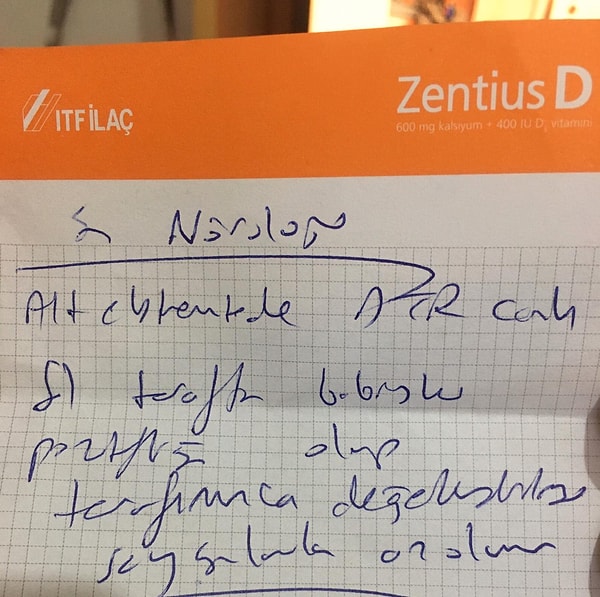 İTFİLAÇ
Zentius D
600 mg kalsiyum + 400 IU D₃ vitamini
Nöroloji
Alt ekstremitede DTR canlı
taraflı babinski
olup
tarafınızca değerlendirilmesi
saygılarla arz olunur